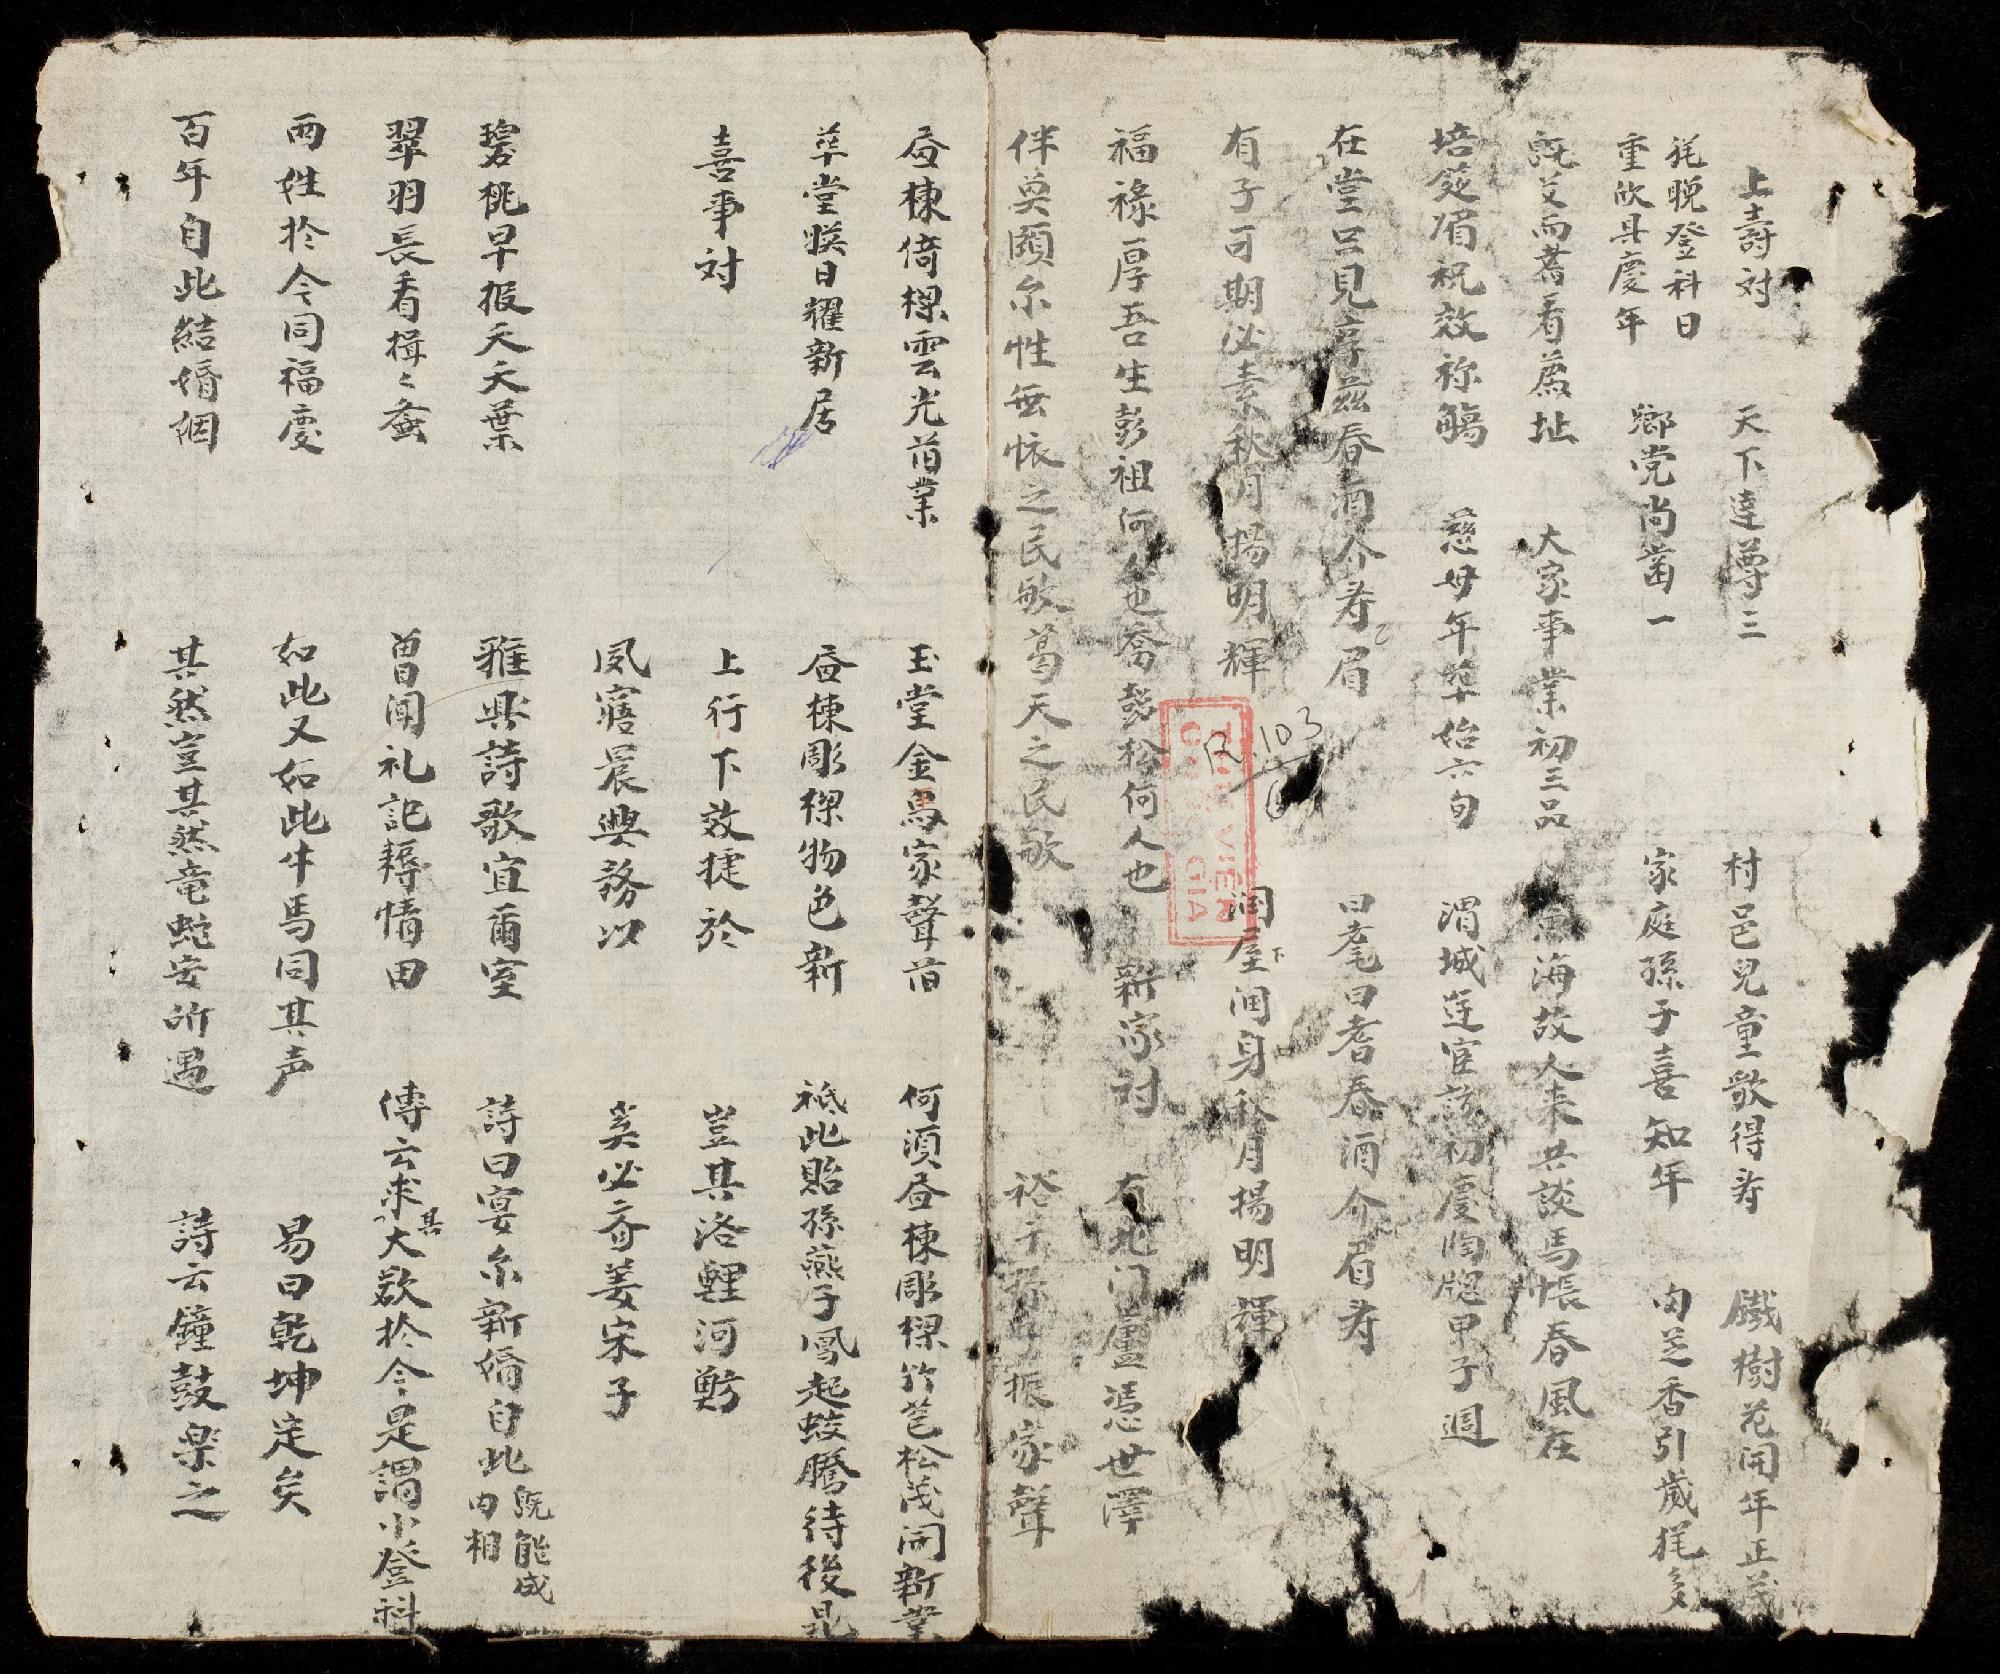 上壽对 天下達尊三 村邑兒童歌得寿 鐵樹花開年正茂
旄晚登科日
重欣具慶年 鄉党尚齒一 家庭孫子喜知年 肉芝香引歲旄多
既艾而耆看為址 大家事業初三品 海故人来共談馬帳春風在
培筵眉祝效祢觴 慈母年華始六旬 渭城莲宦初慶甲子週
在堂只見序茲春酒介寿眉 曰耄曰耆春酒介眉寿
有子可期必素秋月揚明輝 潤屋潤身秋月揚明輝
福祿厚吾生彭祖何人也喬彭松何人也 新家对 有北门廬憑世澤
伴奐頤尔性無懐之民敏葛天之民敏 裕子孫振家聲
昼棟倚樑雲光旧業 玉堂金馬家聲旧 何湏昼棟彫樑竹苞松茂開新業
華堂映日耀新居 昼棟彫樑物色新 祇此貽孫燕子鳳起蛟騰待後昆
喜事对 上行下效捷於 豈其洛鯉河魴
夙寤晨興務以 奚必齐姜宋子
碧桃早报夭夭葉 雅興詩歌宜爾室 詩曰宴尔新婚自此既能成内相
翠羽長看揖〻螽 曽闻礼記耨情田 傳云求其大欲於今是謂小登科
两姓於今同福慶 如此又如此牛馬同其声 易曰乾坤定矣
百年自此結婚姻 其然豈其然竜蛇安所遇 詩云鐘鼓楽之
103